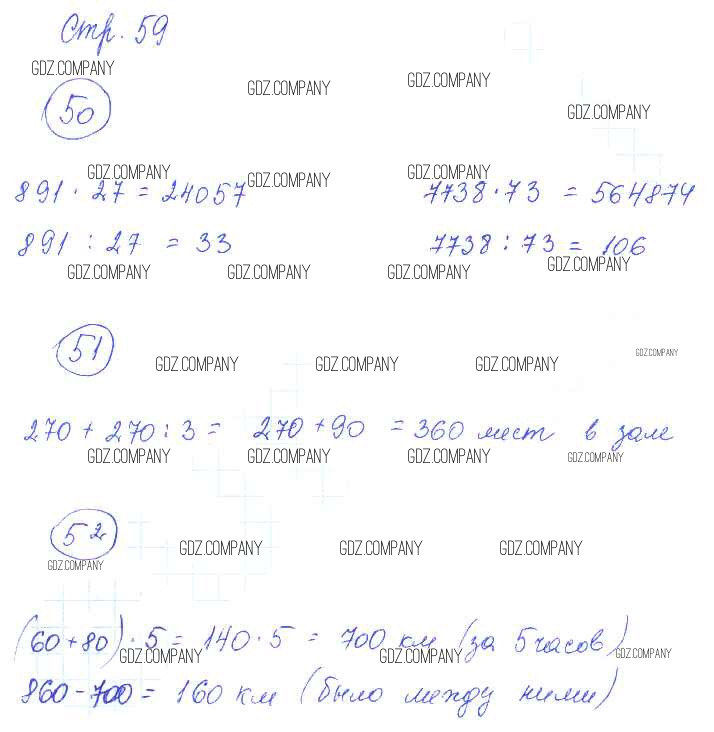 Стр. 59
GDZ.COMPANY GDZ.COMPANY GDZ.COMPANY GDZ.COMPANY
50
GDZ.COMPANY GDZ.COMPANY GDZ.COMPANY
891 · 27 = 24057 7738 · 73 = 564874
891 : 27 = 33 7738 : 73 = 106
GDZ.COMPANY GDZ.COMPANY GDZ.COMPANY GDZ.COMPANY
51
GDZ.COMPANY GDZ.COMPANY GDZ.COMPANY GDZ.COMPANY
270 + 270 : 3 = 270 + 90 = 360 мест в зале
GDZ.COMPANY GDZ.COMPANY GDZ.COMPANY GDZ.COMPANY
52
GDZ.COMPANY GDZ.COMPANY GDZ.COMPANY GDZ.COMPANY
(60 + 80) · 5 = 140 · 5 = 700 км (за 5 часов)
GDZ.COMPANY GDZ.COMPANY GDZ.COMPANY
860 - 700 = 160 км (было между ними)